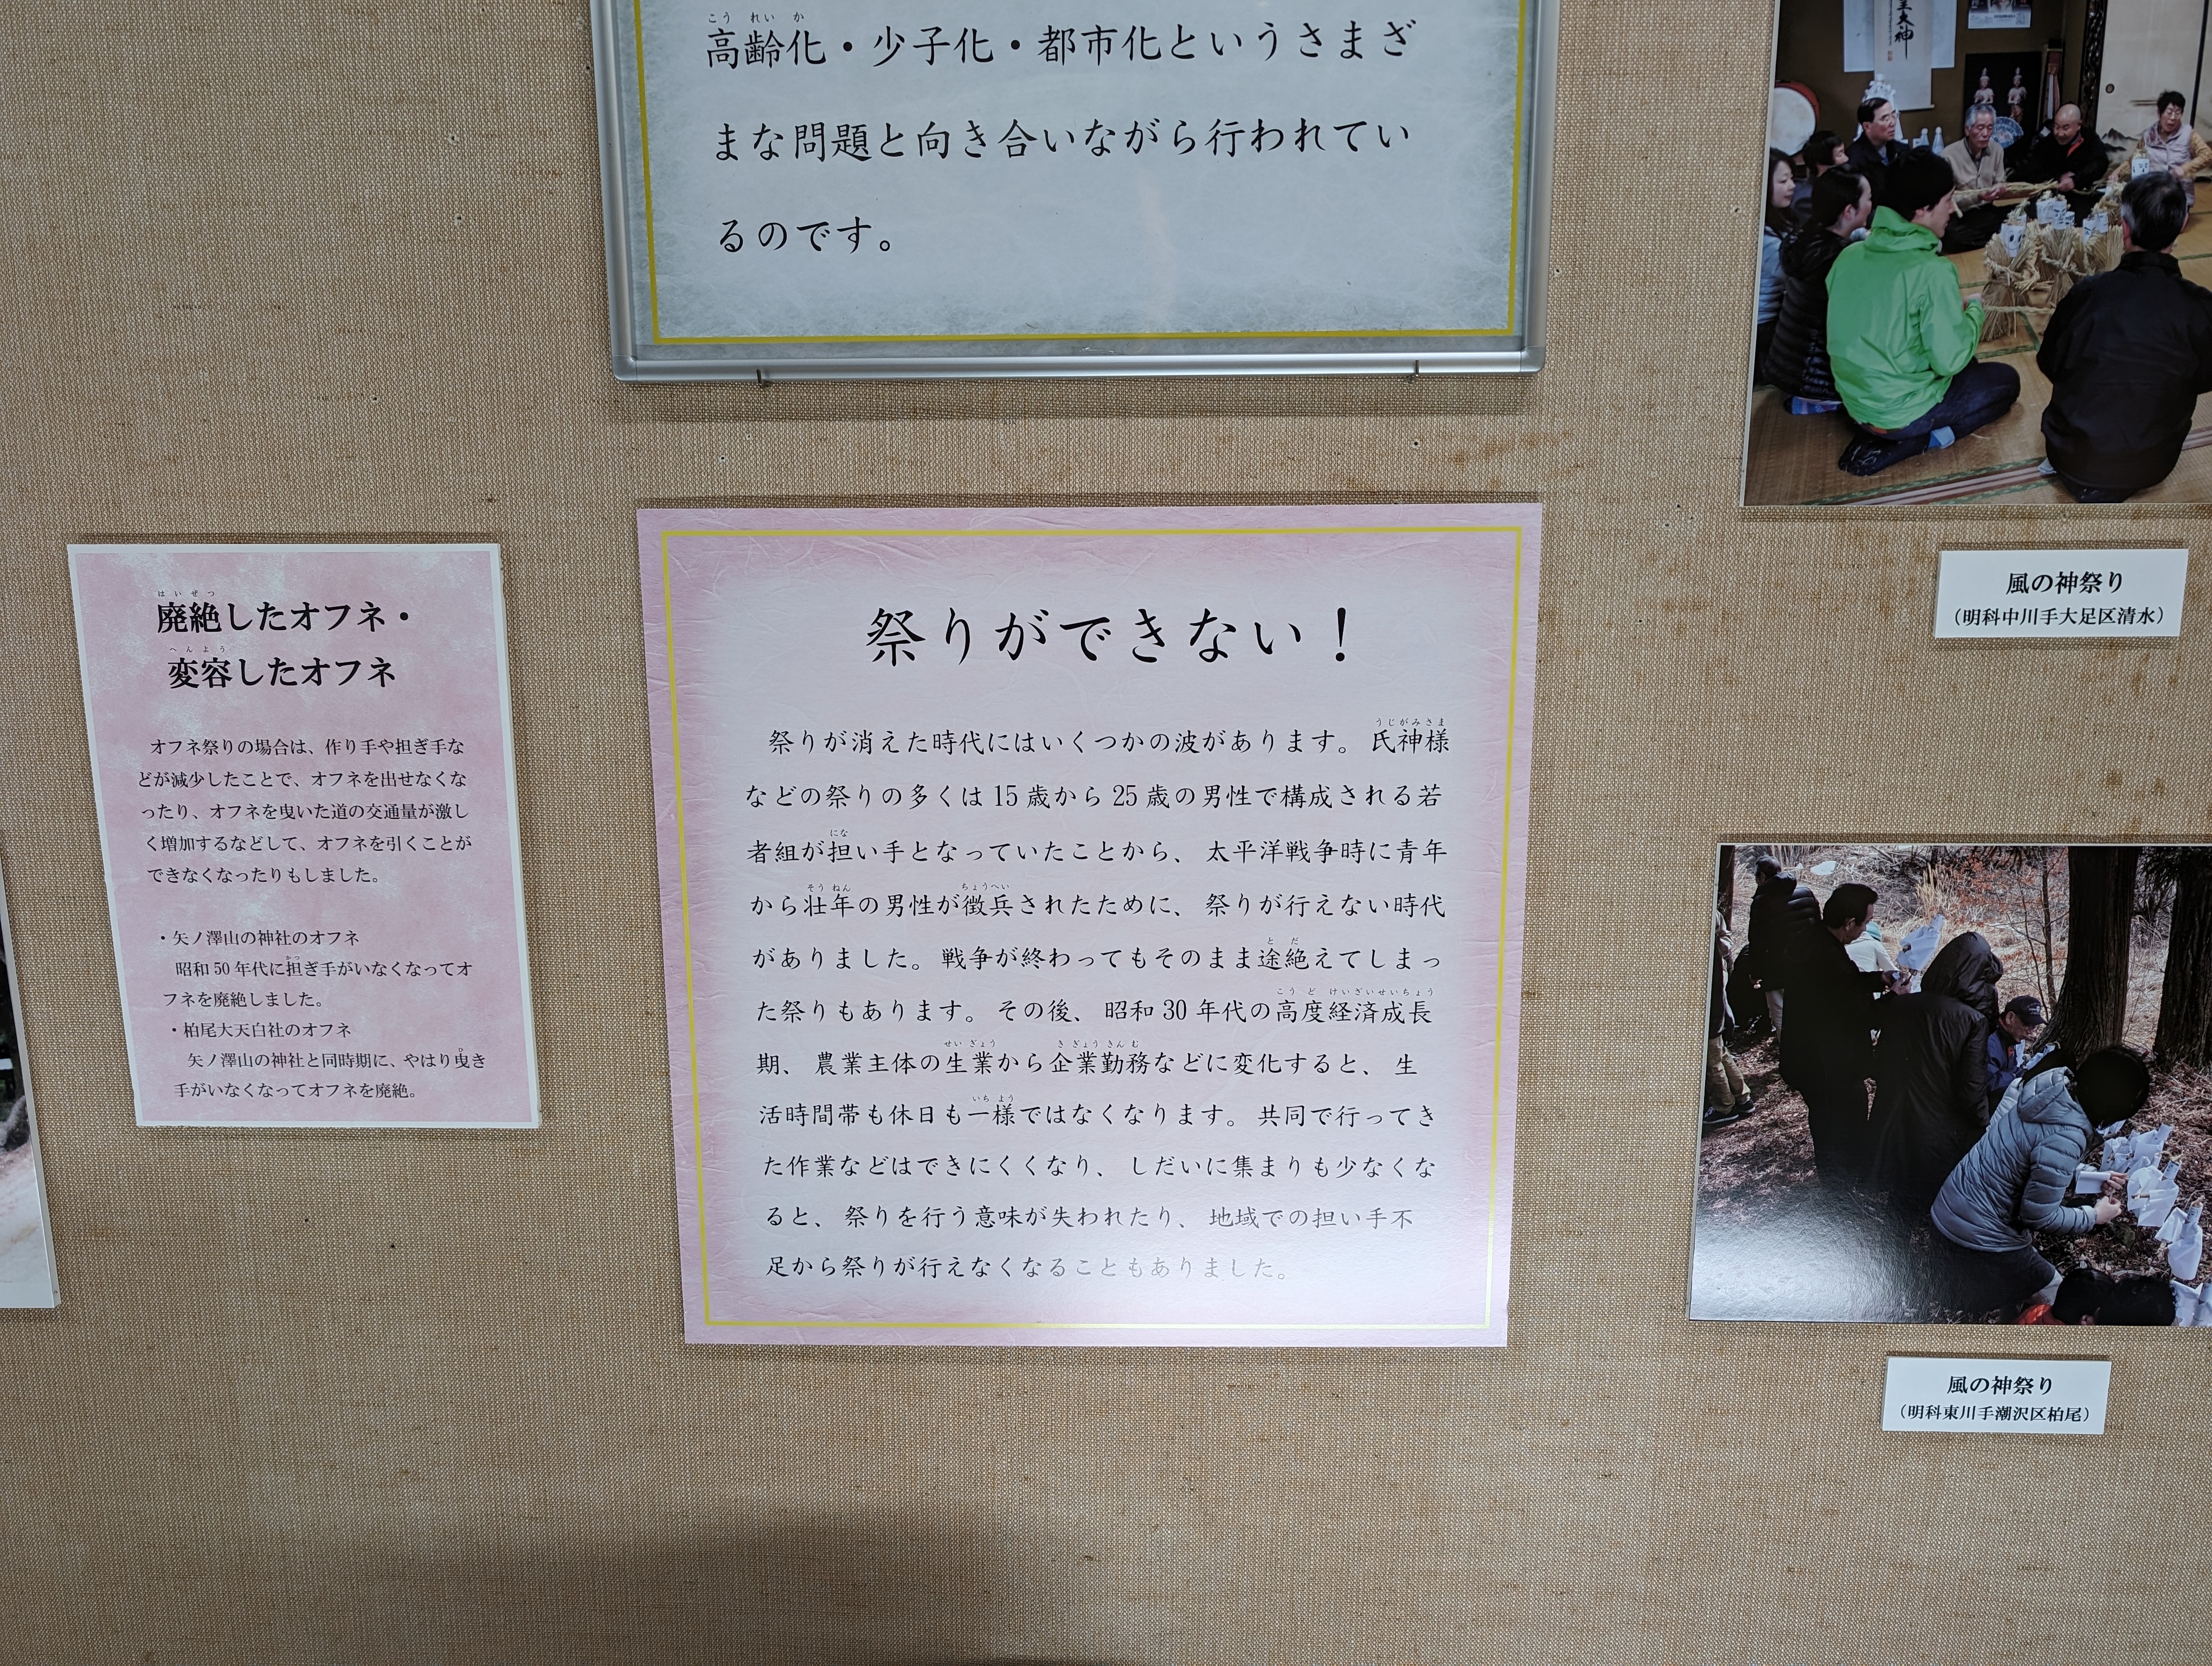 高齢化・少子化・都市化というさまざ
まな問題と向き合いながら行われてい
るのです。
廃絶したオフネ・
変容したオフネ
オフネ祭りの場合は、作り手や担ぎ手な
どが減少したことで、オフネを出せなくな
ったり、オフネを曳いた道の交通量が激し
く増加するなどして、オフネを引くことが
できなくなったりもしました。
・矢ノ澤山の神社のオフネ
昭和50年代に担ぎ手がいなくなってオ
フネを廃絶しました。
・柏尾大天白社のオフネ
矢ノ澤山の神社と同時期に、やはり曳き
手がいなくなってオフネを廃絶。
祭りができない！
祭りが消えた時代にはいくつかの波があります。氏神様
などの祭りの多くは15歳から25歳の男性で構成される若
者組が担い手となっていたことから、太平洋戦争時に青年
から壮年の男性が徴兵されたために、祭りが行えない時代
がありました。戦争が終わってもそのまま途絶えてしまっ
た祭りもあります。その後、昭和30年代の高度経済成長
期、農業主体の生業から企業勤務などに変化すると、生
活時間帯も休日も一様ではなくなります。共同で行ってき
た作業などはできにくくなり、しだいに集まりも少なくな
ると、祭りを行う意味が失われたり、地域での担い手不
足から祭りが行えなくなることもありました。
風の神祭り
（明科中川手大足区清水）
風の神祭り
（明科東川手潮沢区柏尾）